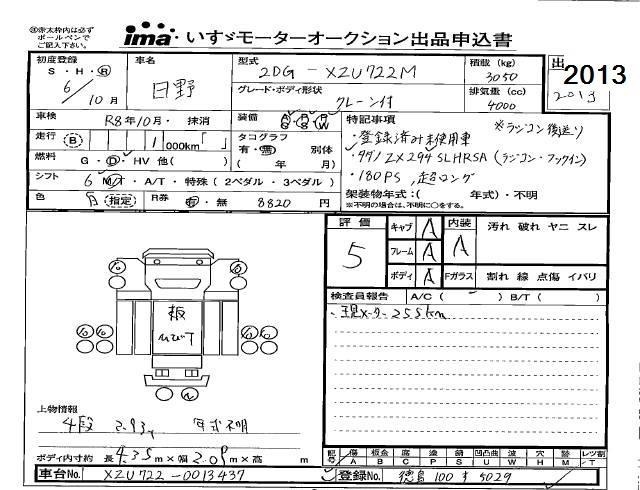 ※赤太枠内は必ず
ボールペンで
ご記入下さい。
ima いすゞモーターオークション出品申込書
出
2013
2013
初度登録
S・H・R
6/10月
車名
日野
型式
2DG-XZU722M
積載 (kg)
3050
グレード・ボディ形状
クレーン付
排気量 (cc)
4000
車検
R8年10月・抹消
装備 A P P
G S W
特記事項
※ラジコン後送り
・登録済み未使用車
・タダノ ZX294SLHRSA (ラジコン・フックイン)
・180PS, 超ロング
走行 (B) 1 000km「 」
タコグラフ
有・無 別体
( 年 月)
燃料 G・D・HV 他( )
シフト 6 MT・A/T・特殊 (2ペダル・3ペダル)
架装物年式:( 年式)・不明
※不明の場合は、不明に○をする。
色 白 (指定)
R券 有・無 8820 円
評価
5
キャブ A
フレーム A
ボディ A
内装
A
汚れ 破れ ヤニ スレ
Fガラス
割れ 線 点傷 イバリ
検査員報告 A/C ( ) B/T ( )
・現メーター 255km
板
ひびT
上物情報
4段 2.93t 年式不明
ボディ内寸約 長 4.35 m×幅 2.09 m×高 m
記号 傷 板金 腐 塗 錆 凹凸曲 波 穴 替 レツ割
A B C P S U W H M T
車台No. XZU722-0013437
登録No. 徳島 100 す 5029